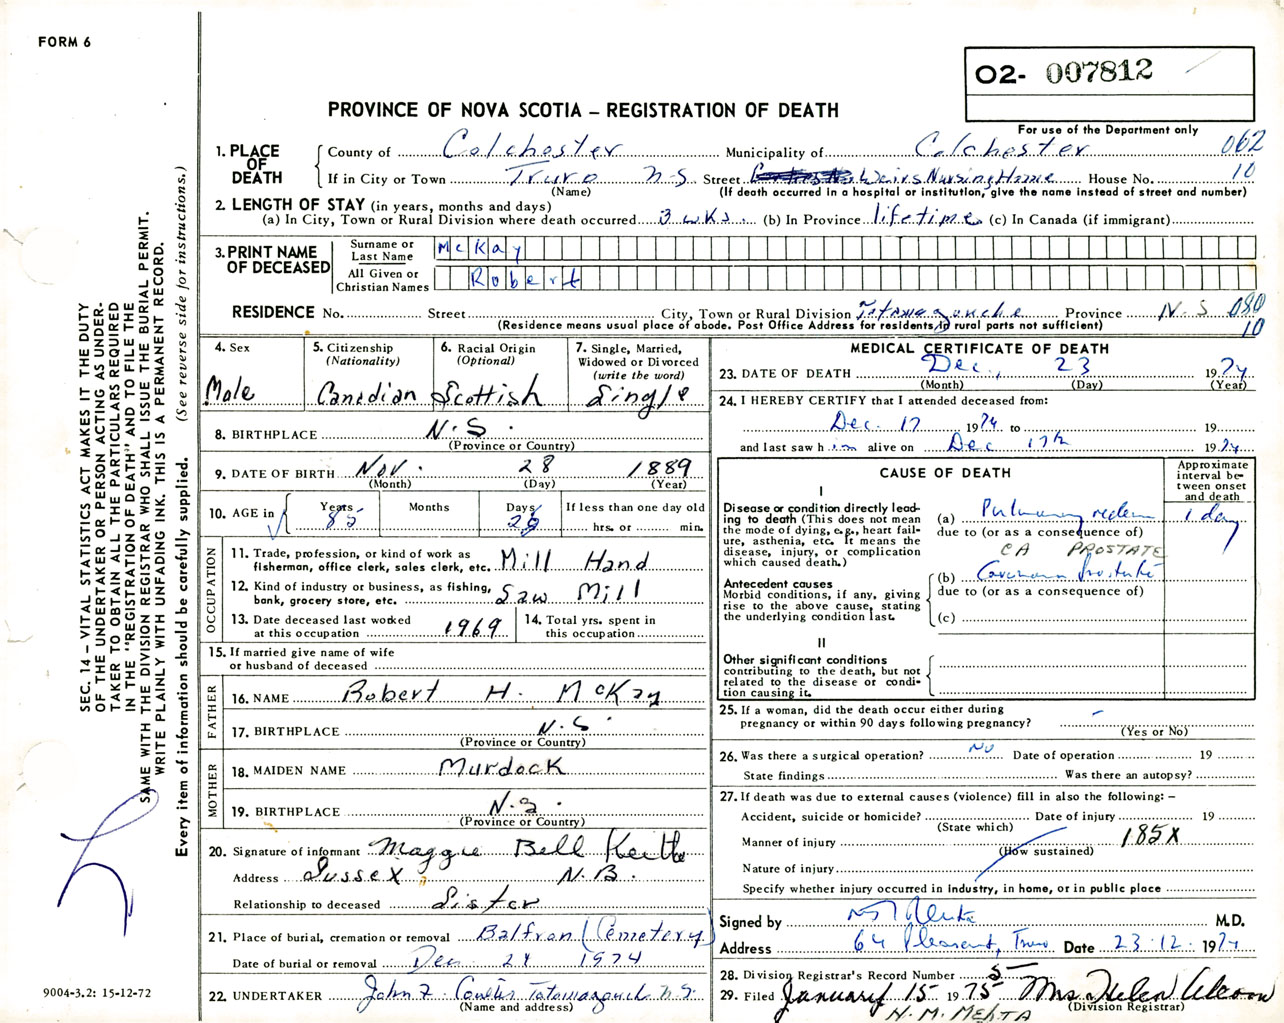 FORM 6
O2- 007812
PROVINCE OF NOVA SCOTIA – REGISTRATION OF DEATH
For use of the Department only
062
10
1. PLACE OF DEATH
County of Colchester Municipality of Colchester
If in City or Town Truro N.S Street Weirs Nursing Home House No.
(Name) (If death occurred in a hospital or institution, give the name instead of street and number)
2. LENGTH OF STAY (in years, months and days)
(a) In City, Town or Rural Division where death occurred 3 wks. (b) In Province lifetime (c) In Canada (if immigrant)
3. PRINT NAME OF DECEASED
Surname or Last Name McKay
All Given or Christian Names Robert
RESIDENCE No. Street City, Town or Rural Division Tatamagouche Province N.S 080
10
(Residence means usual place of abode. Post Office Address for residents in rural parts not sufficient)
4. Sex
Male
5. Citizenship
(Nationality)
Canadian
6. Racial Origin
(Optional)
Scottish
7. Single, Married,
Widowed or Divorced
(write the word)
Single
8. BIRTHPLACE N.S.
(Province or Country)
9. DATE OF BIRTH Nov. 28 1889
(Month) (Day) (Year)
10. AGE in
Years 85
Months
Days 26
If less than one day old
hrs. or min.
OCCUPATION
11. Trade, profession, or kind of work as
fisherman, office clerk, sales clerk, etc. Mill Hand
12. Kind of industry or business, as fishing,
bank, grocery store, etc. Saw Mill
13. Date deceased last worked
at this occupation 1969
14. Total yrs. spent in
this occupation
15. If married give name of wife
or husband of deceased
FATHER
16. NAME Robert H. McKay
17. BIRTHPLACE N.S.
(Province or Country)
MOTHER
18. MAIDEN NAME Murdock
19. BIRTHPLACE N.S.
(Province or Country)
20. Signature of informant Maggie Bell Keith
Address Sussex N.B.
Relationship to deceased Sister
21. Place of burial, cremation or removal Balfron (Cemetery)
Date of burial or removal Dec 24 1974
22. UNDERTAKER John Coulter Tatamagouche N.S.
(Name and address)
MEDICAL CERTIFICATE OF DEATH
23. DATE OF DEATH Dec. 23 1974
(Month) (Day) (Year)
24. I HEREBY CERTIFY that I attended deceased from:
Dec. 17 1974 to 19
and last saw him alive on Dec 17th 1974
CAUSE OF DEATH
Approximate
interval be-
tween onset
and death
I
Disease or condition directly lead-
ing to death (This does not mean
the mode of dying, e.g., heart fail-
ure, asthenia, etc. It means the
disease, injury, or complication
which caused death.)
(a) Pulmonary edema 1 day
due to (or as a consequence of)
CA PROSTATE
Antecedent causes
Morbid conditions, if any, giving
rise to the above cause, stating
the underlying condition last.
(b) Carcinoma Prostate
due to (or as a consequence of)
(c)
II
Other significant conditions
contributing to the death, but not
related to the disease or condi-
tion causing it.
25. If a woman, did the death occur either during
pregnancy or within 90 days following pregnancy? –
(Yes or No)
26. Was there a surgical operation? No Date of operation 19
State findings Was there an autopsy?
27. If death was due to external causes (violence) fill in also the following: –
Accident, suicide or homicide? Date of injury 19
(State which)
Manner of injury 185X
(How sustained)
Nature of injury
Specify whether injury occurred in Industry, in home, or in public place
Signed by M.D.
Address 64 Pleasant, Truro Date 23.12. 1974
28. Division Registrar's Record Number 5
29. Filed January 15 1975 Mrs Helen
(Division Registrar)
N.M. MEHTA
SEC. 14 – VITAL STATISTICS ACT MAKES IT THE DUTY
OF THE UNDERTAKER OR PERSON ACTING AS UNDER-
TAKER TO OBTAIN ALL THE PARTICULARS REQUIRED
IN THE "REGISTRATION OF DEATH" AND TO FILE THE
SAME WITH THE DIVISION REGISTRAR WHO SHALL ISSUE THE BURIAL PERMIT.
WRITE PLAINLY WITH UNFADING INK. THIS IS A PERMANENT RECORD.
Every item of information should be carefully supplied. (See reverse side for instructions.)
9004-3.2: 15-12-72